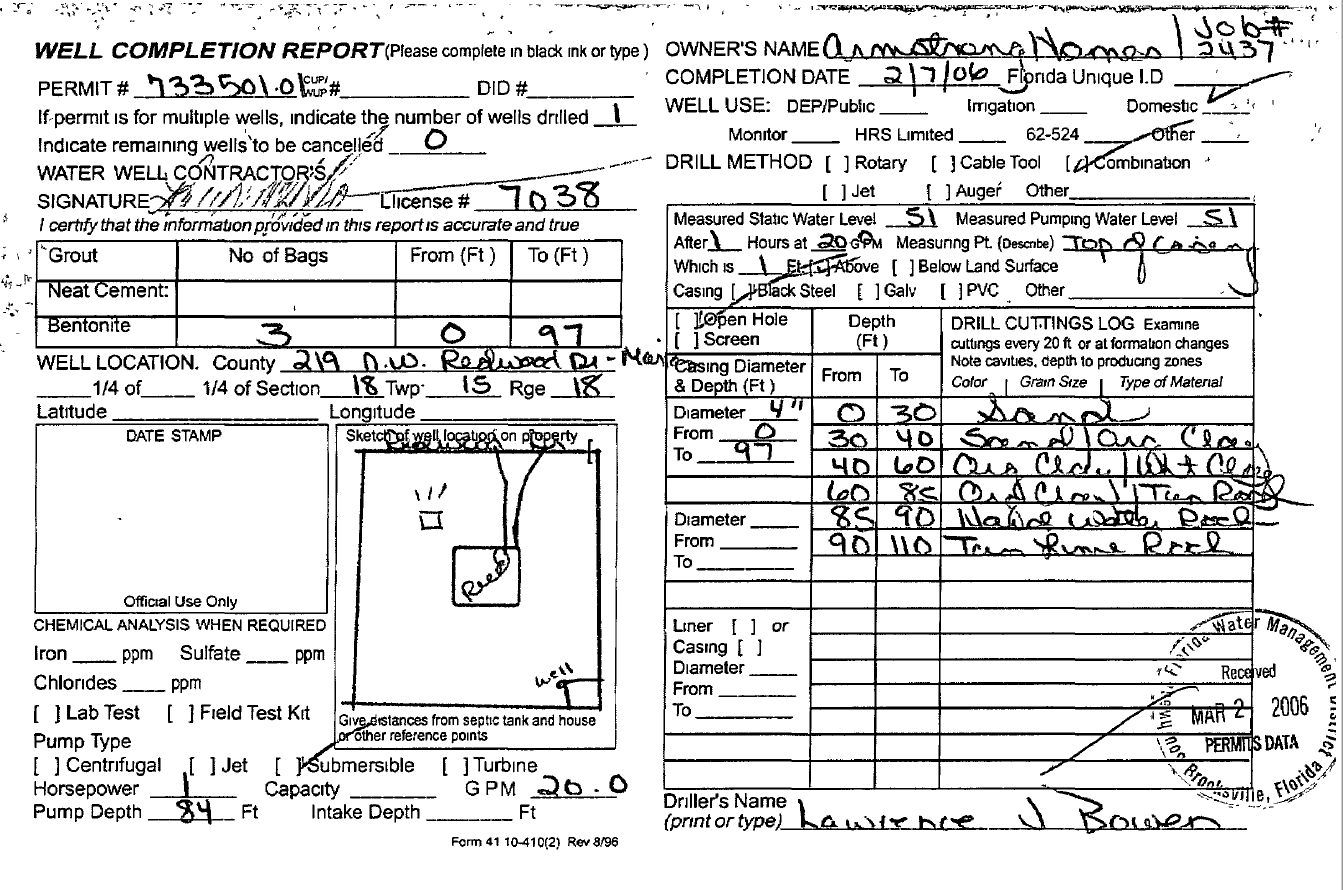 WELL COMPLETION REPORT (Please complete in black ink or type)
PERMIT # 733501.01 CUP/WUP # DID #
If permit is for multiple wells, indicate the number of wells drilled 1
Indicate remaining wells to be cancelled 0
WATER WELL CONTRACTOR'S
SIGNATURE License # 7038
I certify that the information provided in this report is accurate and true
Grout No of Bags From (Ft) To (Ft)
Neat Cement:
Bentonite 3 0 97
WELL LOCATION. County 219 N.W. Redwood Dr -
1/4 of 1/4 of Section 18 Twp 15 Rge 18
Latitude Longitude
DATE STAMP
Official Use Only
Sketch of well location on property
well
Give distances from septic tank and house
or other reference points
CHEMICAL ANALYSIS WHEN REQUIRED
Iron ppm Sulfate ppm
Chlorides ppm
[ ] Lab Test [ ] Field Test Kit
Pump Type
[ ] Centrifugal [ ] Jet [✓] Submersible [ ] Turbine
Horsepower 1 Capacity GPM 20.0
Pump Depth 84 Ft Intake Depth Ft
Form 41 10-410(2) Rev 8/96
OWNER'S NAME Armstrong Homes / Job #
2437
COMPLETION DATE 2/7/06 Florida Unique I.D
WELL USE: DEP/Public Irrigation Domestic ✓
Monitor HRS Limited 62-524 Other
DRILL METHOD [ ] Rotary [ ] Cable Tool [✓] Combination
[ ] Jet [ ] Auger Other
Measured Static Water Level 51 Measured Pumping Water Level 51
After 1 Hours at 20 GPM Measuring Pt. (Describe) Top of Casing
Which is 1 Ft [✓] Above [ ] Below Land Surface
Casing [✓] Black Steel [ ] Galv [ ] PVC Other
[✓] Open Hole
[ ] Screen
Depth
(Ft)
DRILL CUTTINGS LOG Examine
cuttings every 20 ft or at formation changes
Note cavities, depth to producing zones
Casing Diameter
& Depth (Ft)
From To
Color Grain Size Type of Material
Diameter 4" 0 30 Sand
From 0 30 40 Sand / Org Clay
To 97 40 60 Org Clay / Wht Clay
60 85 Org Clay / Tan Rock
Diameter 85 90 Water Rock
From 90 110 Tan Lime Rock
To
Liner [ ] or
Casing [ ]
Diameter
From
To
Southwest Florida Water Management District
Received
MAR 2 2006
PERMITS DATA
Brooksville, Florida
Driller's Name
(print or type) Lawrence J Bowen